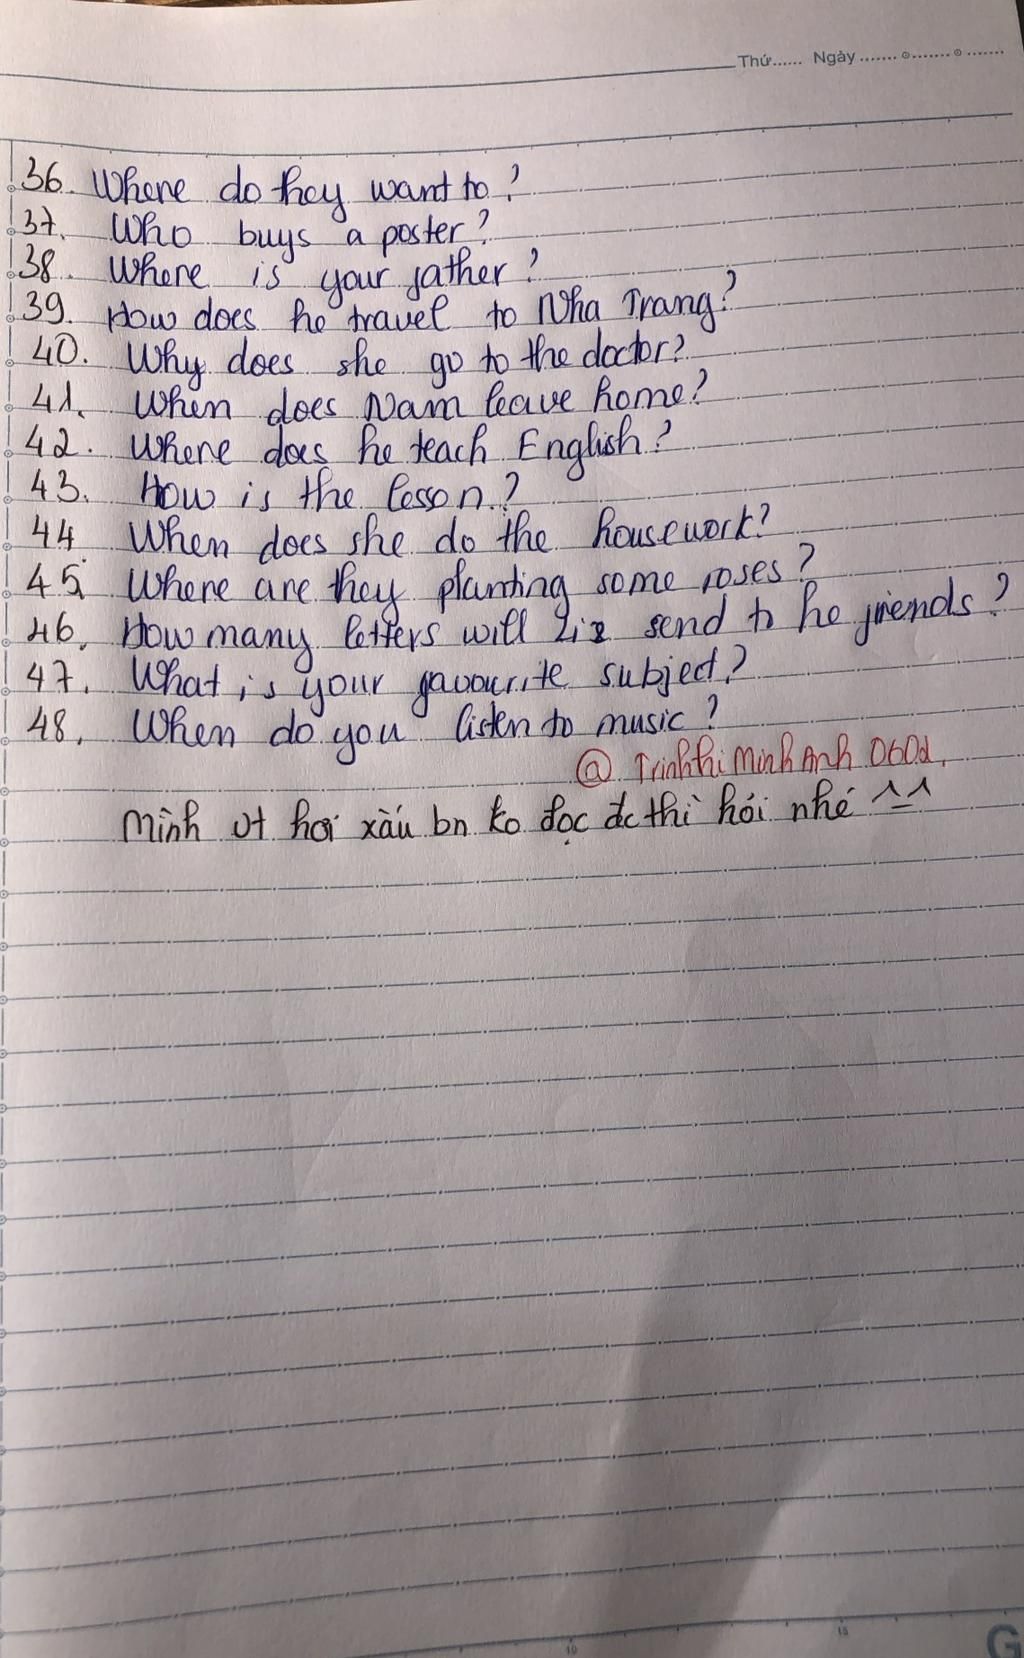 Thứ...... Ngày ................
36. Where do they want to?
37. Who buys a poster?
38. Where is your father?
39. How does he travel to Nha Trang?
40. Why does she go to the doctor?
41. When does Nam leave home?
42. Where does he teach English?
43. How is the lesson?
44. When does she do the housework?
45. Where are they planting some roses?
46. How many letters will Liz send to he friends?
47. What is your favourite subject?
48. When do you listen to music?
@ Trinhthi Minh Anh 0602.
Mình vt hơi xấu bn ko đọc đc thì hỏi nhé ^_^
10 15
G